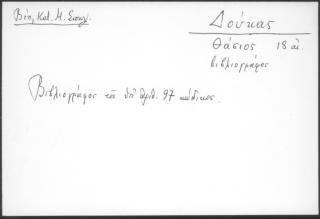 Βέη, Κατ. Μ. Συλλ.
Δούκας
Θάσιος 18 αἰ.
βιβλιογράφος
Βιβλιογράφος τοῦ ὑπ' ἀριθ. 97 κώδικος.